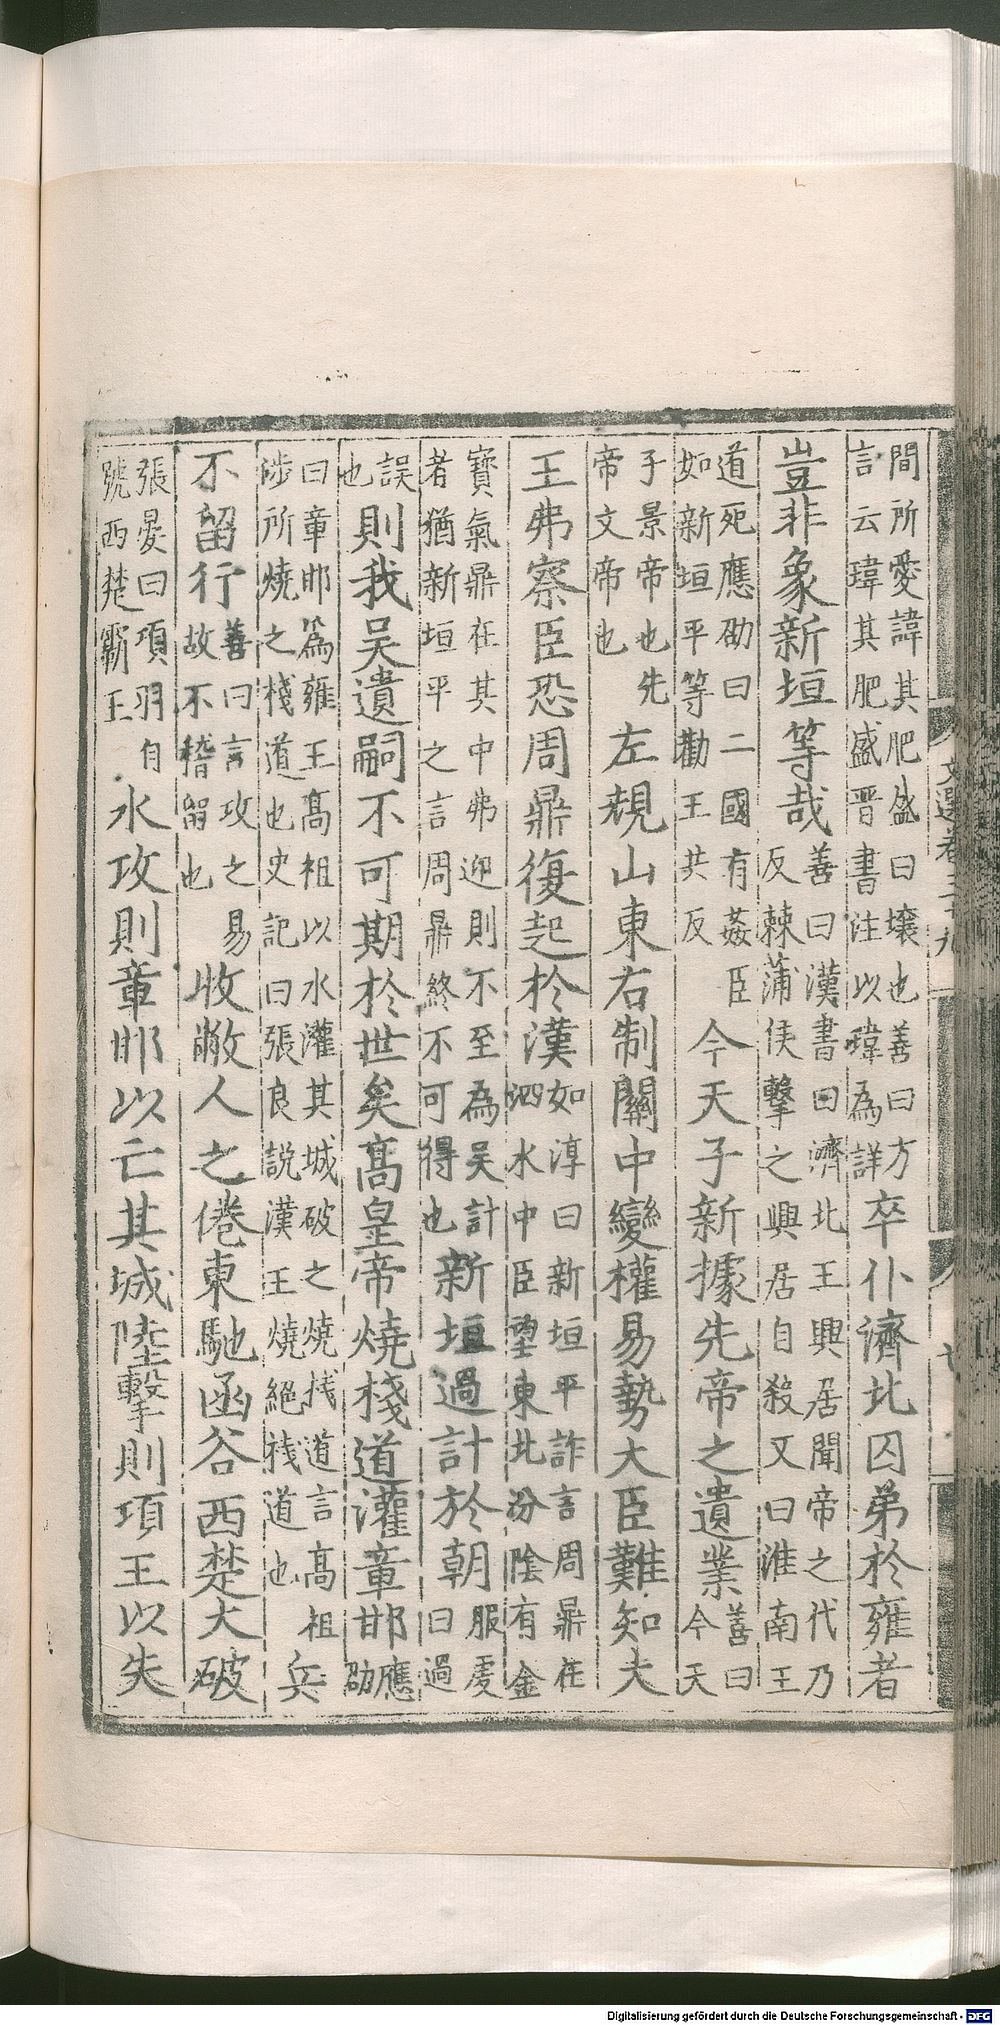 間所愛諱其肥盛曰壤也善曰方
言云瑋其肥盛晋書注以瑋為詳
卒仆濟北囚弟於雍者
豈非象新垣等哉
善曰漢書曰濟北王興居聞帝之代乃
反棘蒲侯擊之興居自殺又曰淮南王
道死應劭曰二國有姦臣
如新垣平等勸王共反
今天子新據先帝之遺業
善曰
今天
子景帝也先
帝文帝也
左規山東右制關中變權易勢大臣難知大
王弗察臣恐周鼎復起於漢
如淳曰新垣平詐言周鼎在
泗水中臣望東北汾陰有金
寶氣鼎在其中弗迎則不至為吳計
者猶新垣平之言周鼎終不可得也
新垣過計於朝
服虔
曰過
誤
也
則我吳遺嗣不可期於世矣高皇帝燒棧道灌章邯
應
劭
曰章邯為雍王高祖以水灌其城破之燒栈道言高祖
涉所燒之棧道也史記曰張良説漢王燒絕栈道也
兵
不留行
善曰言攻之易
故不稽留也
收敝人之倦東馳函谷西楚大破
張晏曰項羽自
號西楚霸王
水攻則章邯以亡其城陸擊則項王以失
文選卷三十九
Digitalisierung gefördert durch die Deutsche Forschungsgemeinschaft - DFG